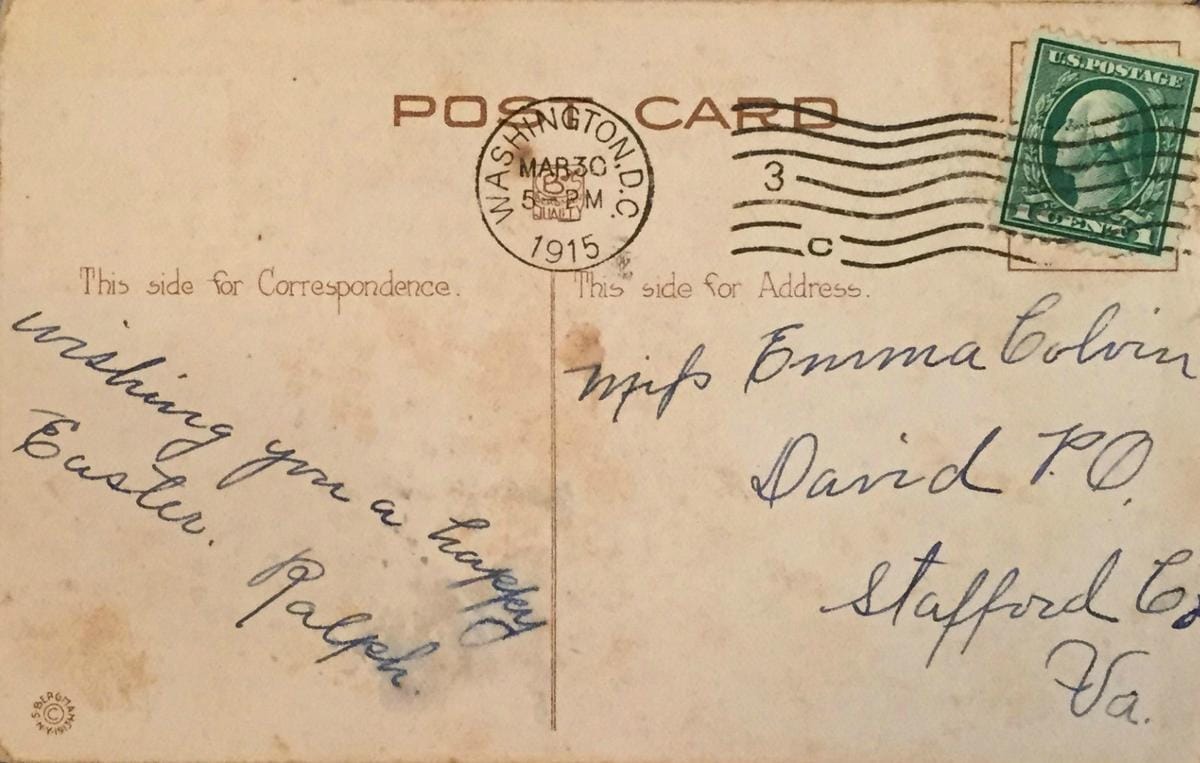 POST CARD
WASHINGTON, D.C.
MAR 30
5 PM
1915
3
C
U.S. POSTAGE
1 CENT 1
B
QUALITY
This side for Correspondence.
wishing you a happy
Easter.
Ralph.
This side for Address.
Miss Emma Colvin
David P.O.
Stafford Co
Va.
© S. BERGMAN
N.Y.